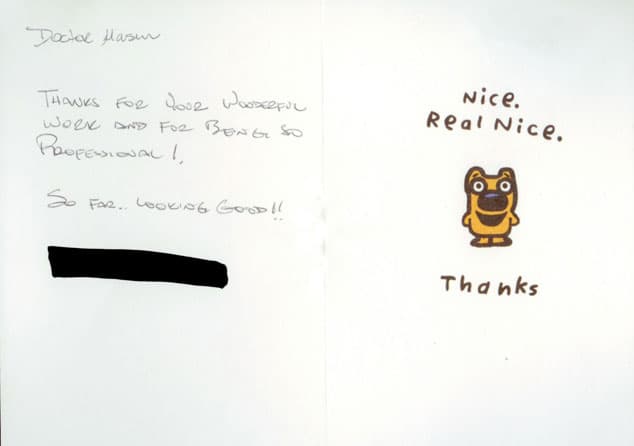 Doctor
THANKS FOR YOUR WODERFUL
WORK AND FOR BEING SO
PROFESSIONAL!,
SO FAR.. LOOKING GOOD!!
Nice.
Real Nice.
Thanks